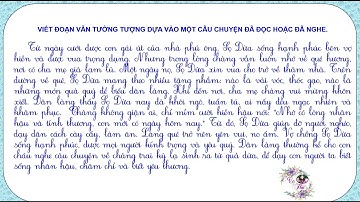 VIẾT ĐOẠN VĂN TƯỞNG TƯỢNG DỰA VÀO MỘT CÂU CHUYỆN ĐÃ ĐỌC HOẶC ĐÃ NGHE.
Từ ngày cưới được con gái út của nhà phú ông, Sọ Dừa sống hạnh phúc bên vợ
hiền và được vua trọng dụng. Nhưng trong lòng chàng vẫn luôn nhớ về quê hương,
nơi có cha mẹ già lam lũ. Một ngày nọ, Sọ Dừa xin vua cho trở về thăm nhà. Trên
đường về, Sọ Dừa mang theo nhiều tặng phẩm: nào là vải vóc, thóc gạo, nào là
những món quà quý để biếu dân làng. Khi đến nơi, cha mẹ chàng mừng khôn
xiết. Dân làng thấy Sọ Dừa nay đã khôi ngô, tuấn tú, ai nấy đều ngạc nhiên và
khâm phục. Chàng không giận ai, chỉ mỉm cười hiền hậu nói: "Nhờ có lòng nhân
hậu và tình thương, con mới có ngày hôm nay." Từ đó, Sọ Dừa giúp đỡ người nghèo,
dạy dân cách cày cấy, làm ăn. Làng quê trở nên yên vui, no ấm. Vợ chồng Sọ Dừa
sống hạnh phúc, được mọi người kính trọng và yêu quý. Dân làng thường kể cho con
cháu nghe câu chuyện về chàng trai kỳ lạ sinh ra từ quả dừa, để dạy con người ta biết
sống nhân hậu, chăm chỉ và biết yêu thương.